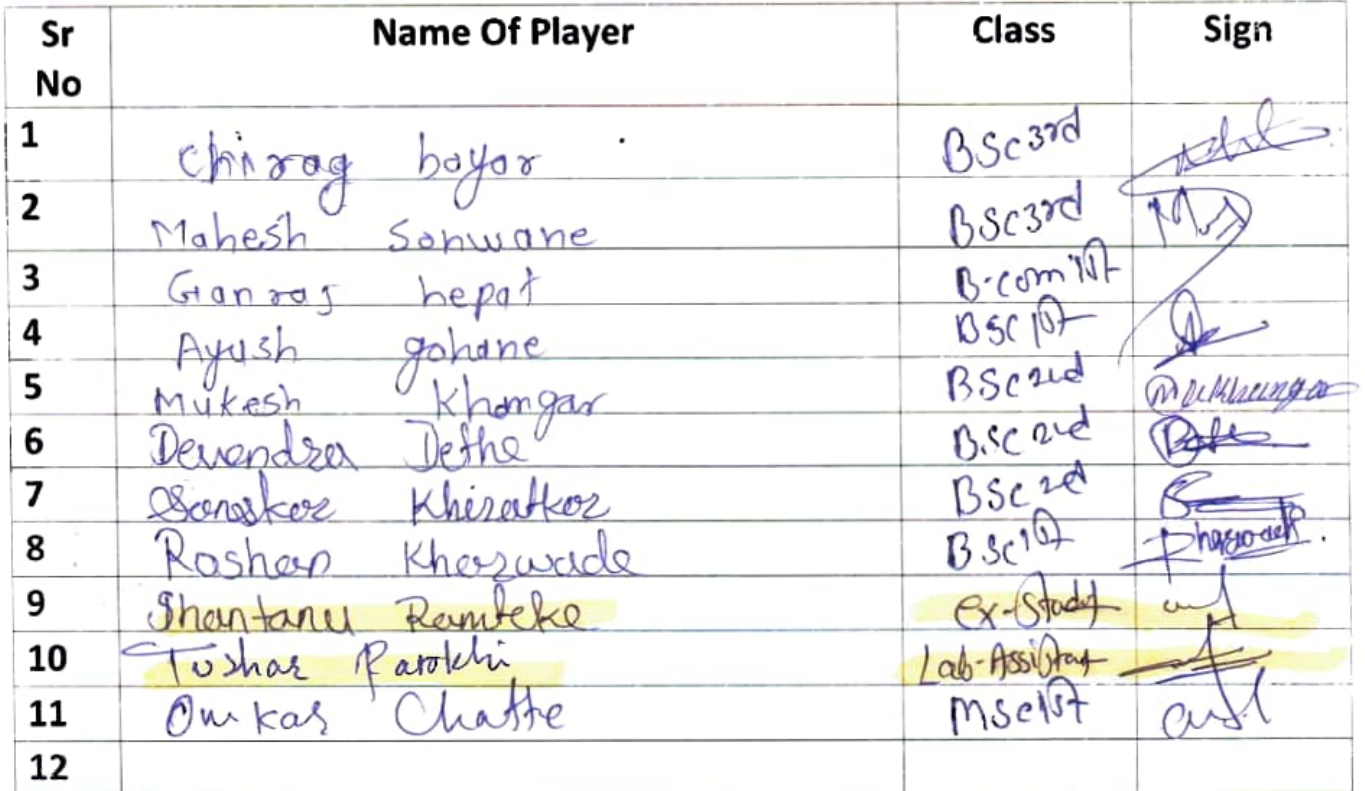 Sr No Name Of Player Class Sign
1 Chirag boyar BSc 3rd
2 Mahesh Sonwane BSc 3rd
3 Ganraj hepat B.com 1st
4 Ayush gohane BSC 1st
5 Mukesh Khangar BSc 2nd
6 Devendra Dethe B.SC 2nd
7 Sanskar Khiratkar BSc 2nd
8 Roshan Kharwade B Sc 1st
9 Shantanu Ramteke ex-Stud
10 Tushar Parokhi Lab-Assistant
11 Omkar Chatte MSc 1st
12